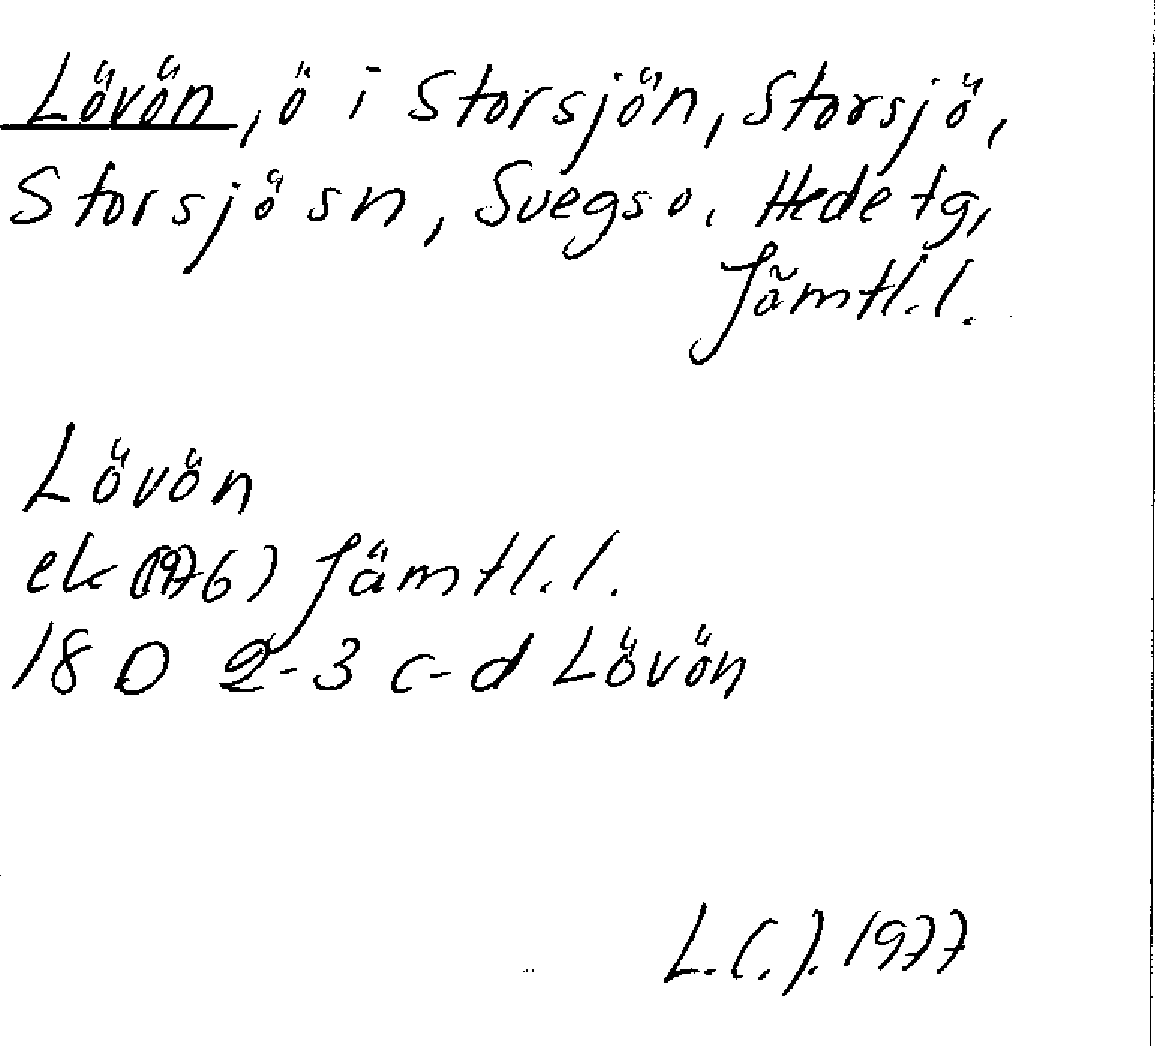 Lövön, ö i Storsjön, Storsjö,
Storsjö sn, Svegs o. Hede tg,
Jämtl. l.
Lövön
ek (1976) Jämtl. l.
18 D 2-3 c-d Lövön
L. (.). 1977